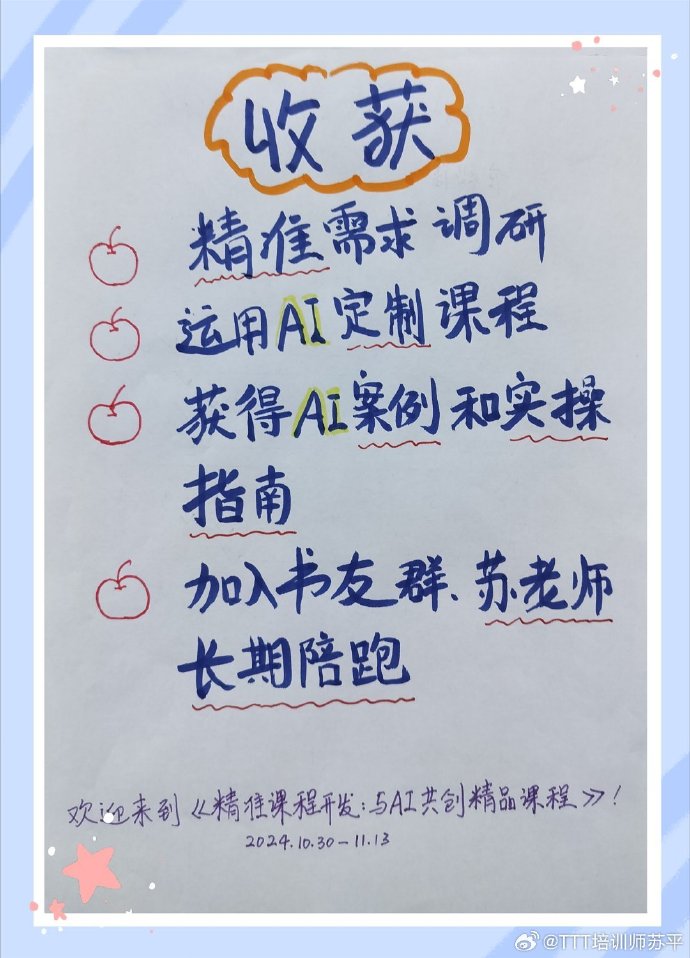 收获
精准需求调研
运用AI定制课程
获得AI案例和实操
指南
加入书友群、苏老师
长期陪跑
欢迎来到《精准课程开发:与AI共创精品课程》!
2024.10.30-11.13
@TTT培训师苏平